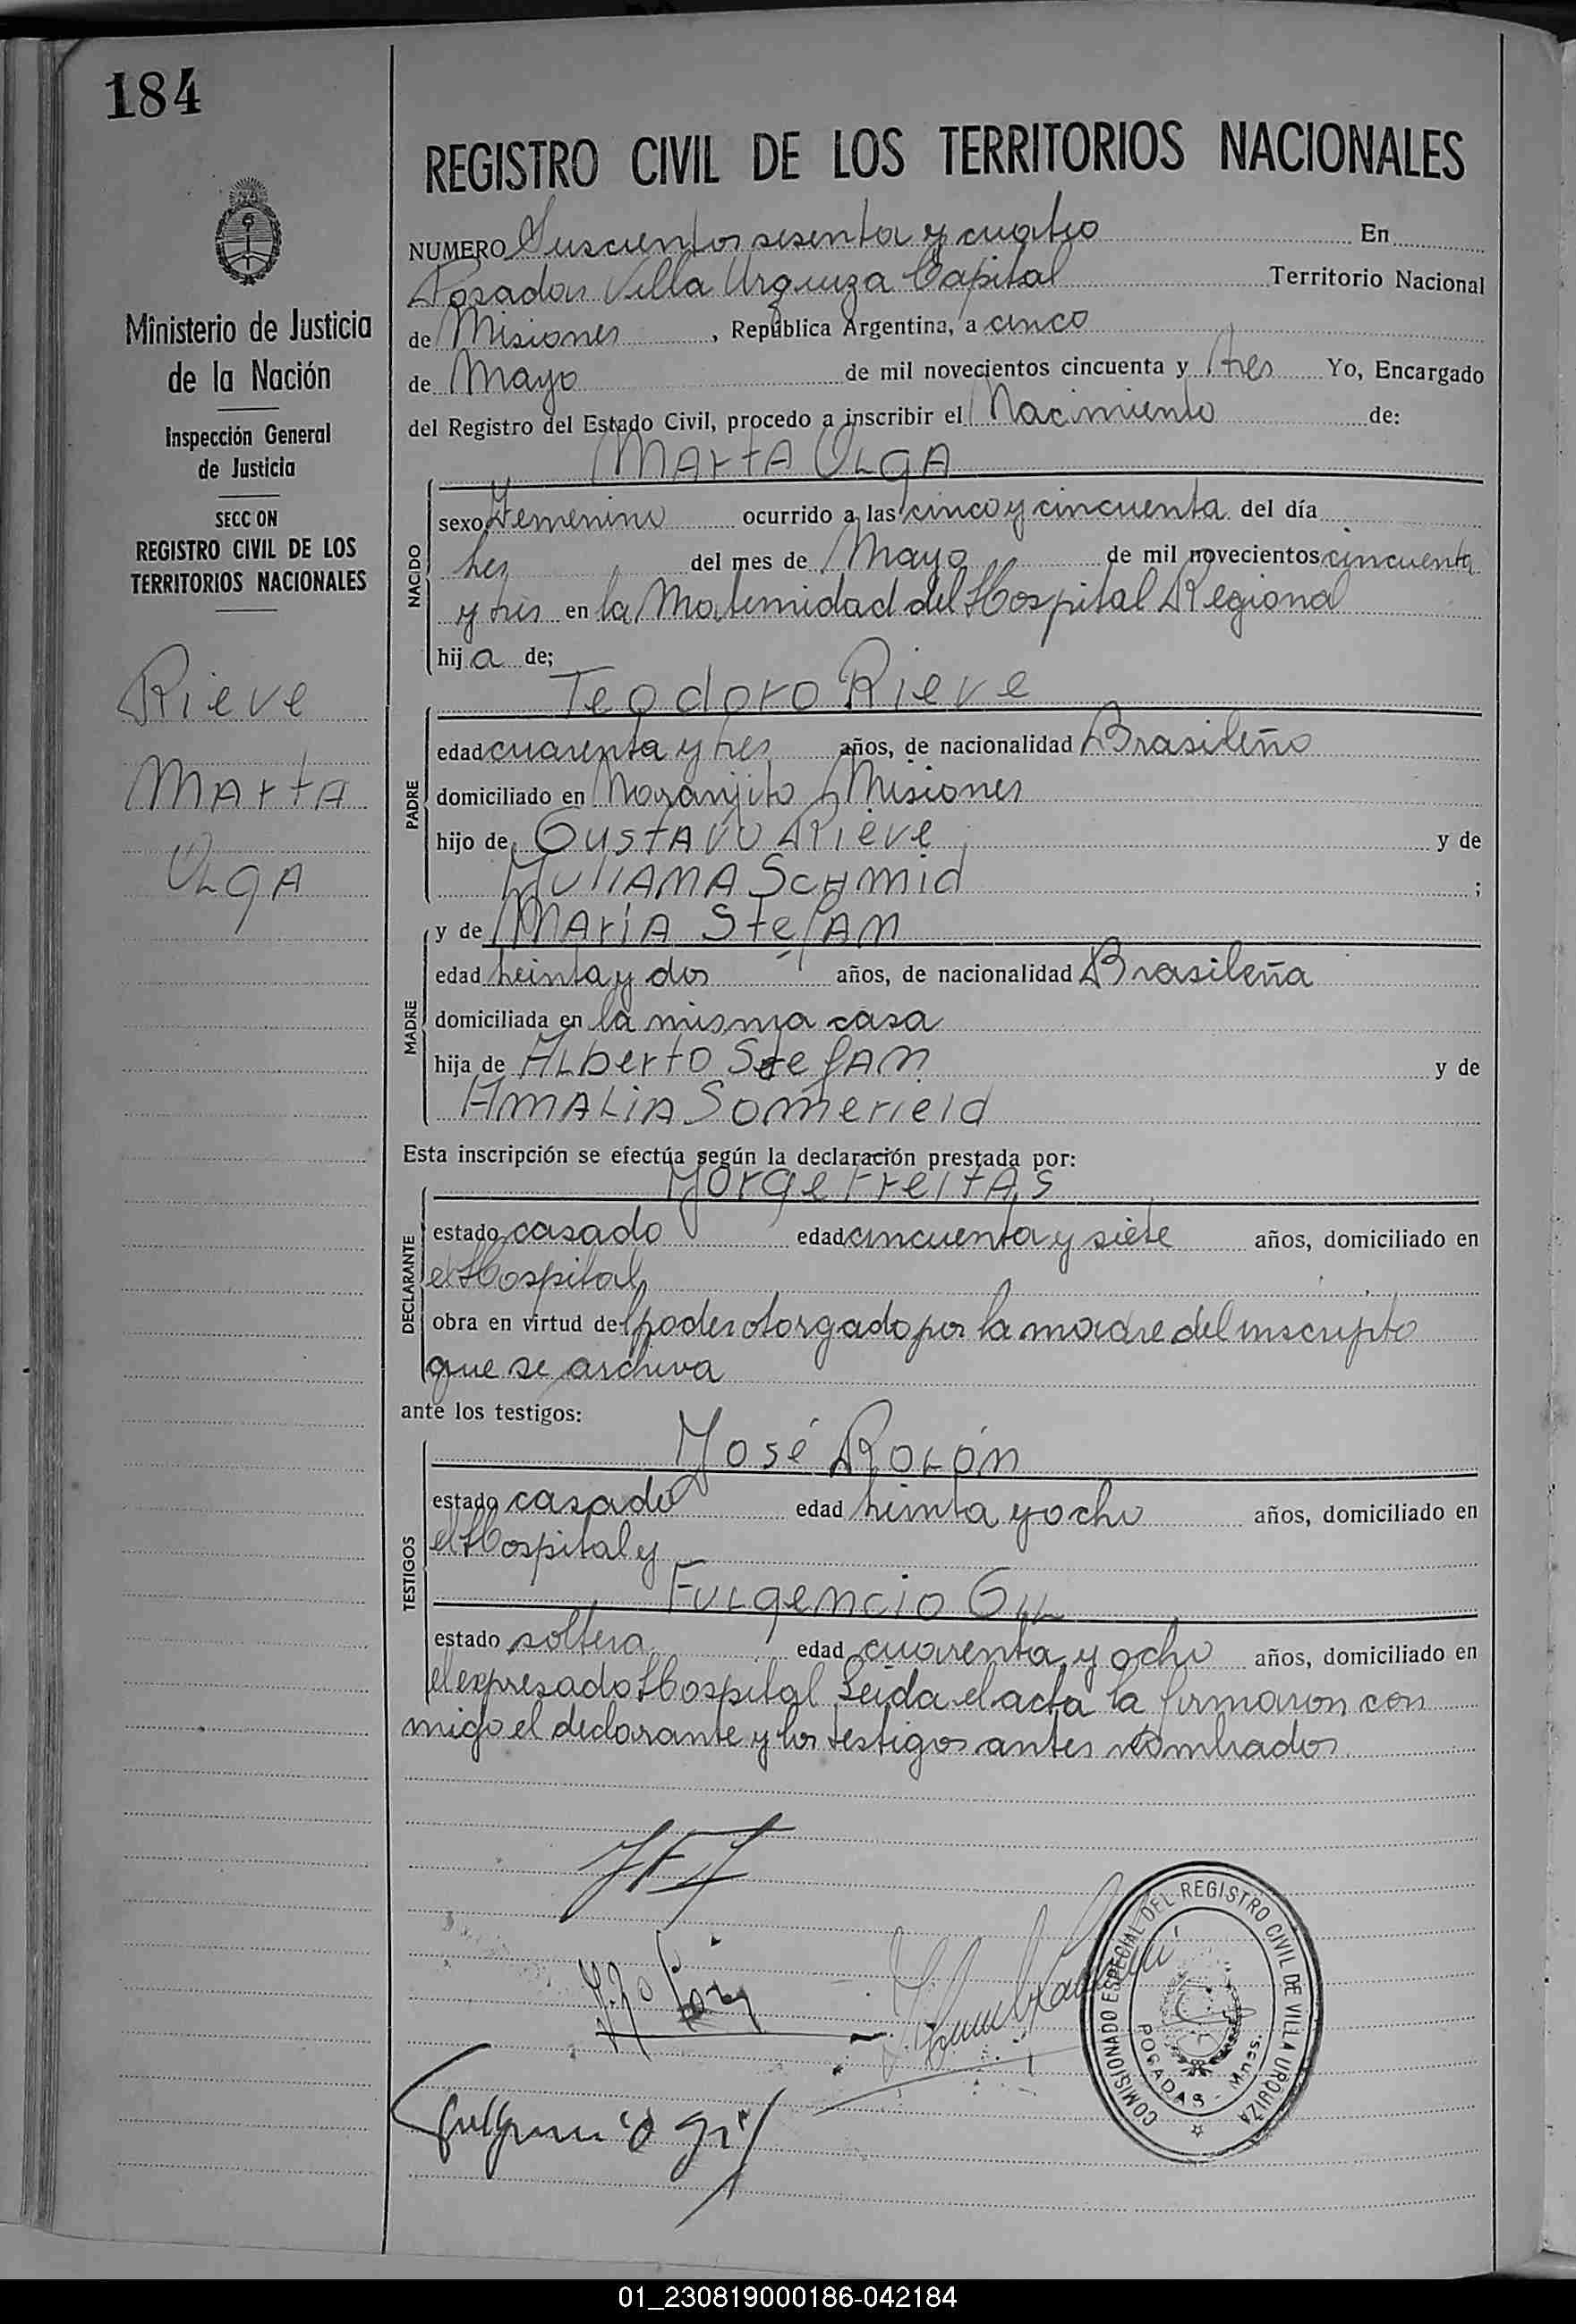 184
REGISTRO CIVIL DE LOS TERRITORIOS NACIONALES
Ministerio de Justicia
de la Nación
Inspección General
de Justicia
SECC ON
REGISTRO CIVIL DE LOS
TERRITORIOS NACIONALES
Rieve
Marta
Olga
NUMERO Duscientos sesenta y cuatro En
Posadas Villa Urquiza Capital Territorio Nacional
de Misiones, República Argentina, a cinco
de Mayo de mil novecientos cincuenta y tres Yo, Encargado
del Registro del Estado Civil, procedo a inscribir el Nacimiento de:
Marta Olga
NACIDO
sexo Femenino ocurrido a las cinco y cincuenta del día
tres del mes de Mayo de mil novecientos cincuenta
y tres en la Maternidad del Hospital Regional
hija de;
Teodoro Rieve
PADRE
edad cuarenta y tres años, de nacionalidad Brasileño
domiciliado en Naranjito Misiones
hijo de Gustavo Rieve y de
Juliana Schmid ;
y de María Stefan
MADRE
edad treinta y dos años, de nacionalidad Brasileña
domiciliada en la misma casa
hija de Alberto Stefan y de
Amalia Somerield
Esta inscripción se efectúa según la declaración prestada por:
Jorge Freitas
DECLARANTE
estado casado edad cincuenta y siete años, domiciliado en
el Hospital
obra en virtud del poder otorgado por la madre del inscripto
que se archiva
ante los testigos:
José Rolón
TESTIGOS
estado casado edad treinta y ocho años, domiciliado en
el Hospital y
Fulgencio Gil
estado soltero edad cuarenta y ocho años, domiciliado en
el expresado Hospital Leida el acta la firmaron con
migo el declarante y los testigos antes nombrados
J. Rolón
Fulgencio Gil
COMISIONADO ESPECIAL DEL REGISTRO CIVIL DE VILLA URQUIZA
POSADAS - Mnes.
01_230819000186-042184